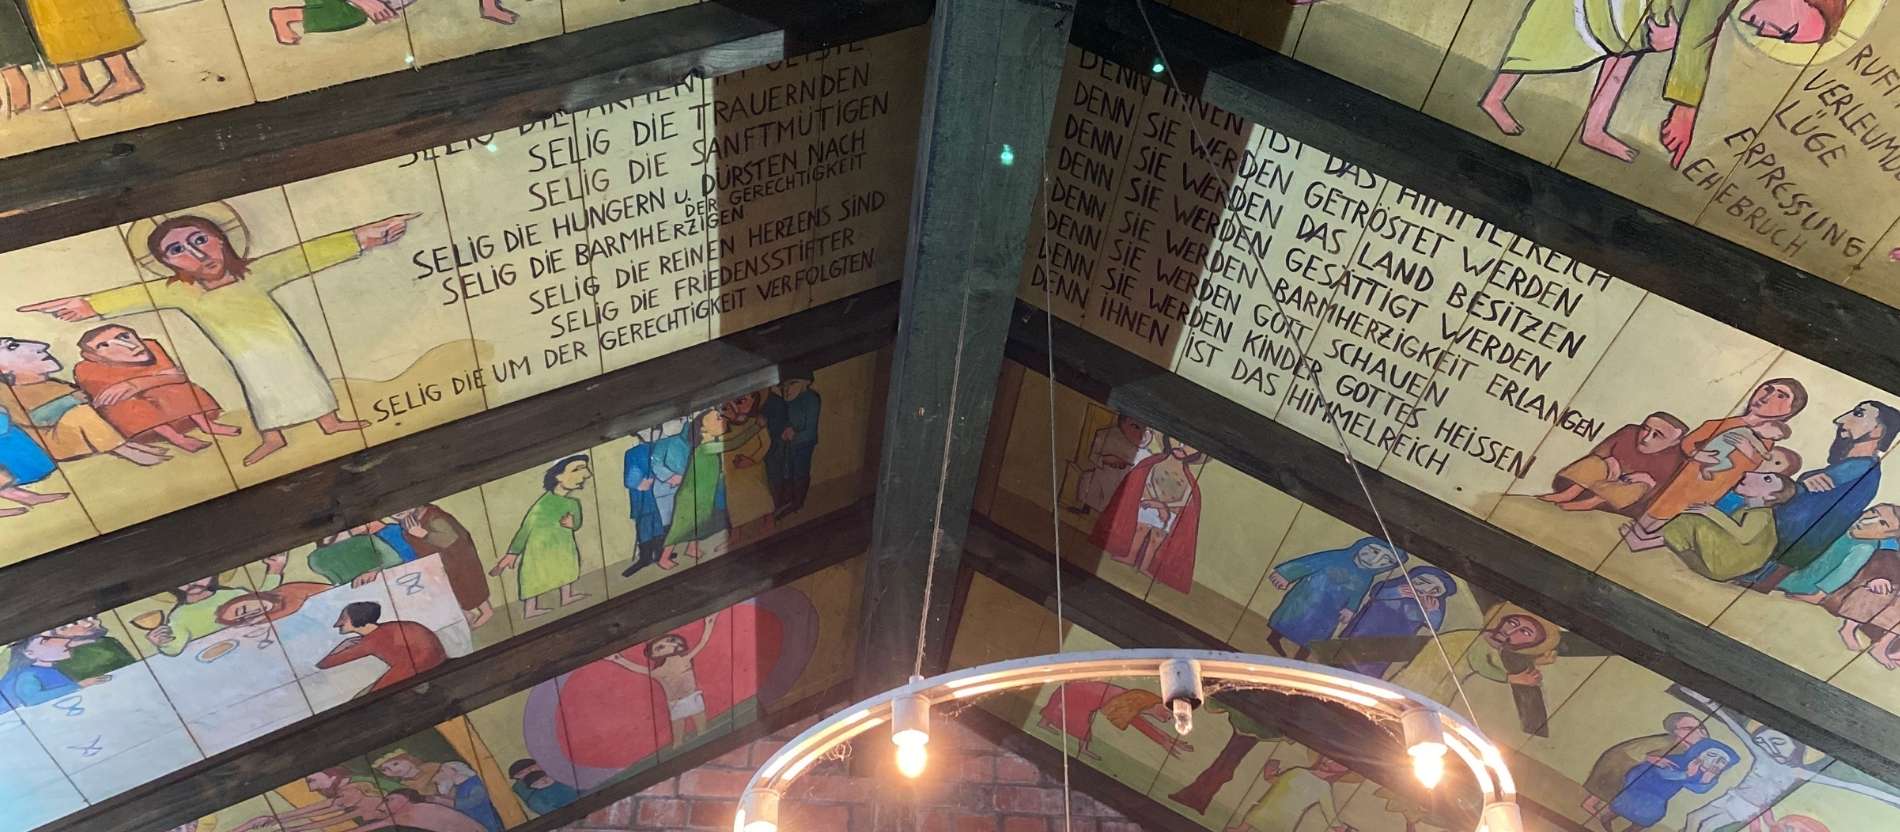 SELIG DIE ARMEN IM GEISTE
SELIG DIE TRAUERNDEN
SELIG DIE SANFTMÜTIGEN
SELIG DIE HUNGERN u. DÜRSTEN NACH
DER GERECHTIGKEIT
SELIG DIE BARMHERZIGEN
SELIG DIE REINEN HERZENS SIND
SELIG DIE FRIEDENSSTIFTER
SELIG DIE UM DER GERECHTIGKEIT VERFOLGTEN
DENN IHNEN IST DAS HIMMELREICH
DENN SIE WERDEN GETRÖSTET WERDEN
DENN SIE WERDEN DAS LAND BESITZEN
DENN SIE WERDEN GESÄTTIGT WERDEN
DENN SIE WERDEN BARMHERZIGKEIT ERLANGEN
DENN SIE WERDEN GOTT SCHAUEN
DENN SIE WERDEN KINDER GOTTES HEISSEN
DENN IHNEN IST DAS HIMMELREICH
LÜGE
ERPRESSUNG
EHEBRUCH